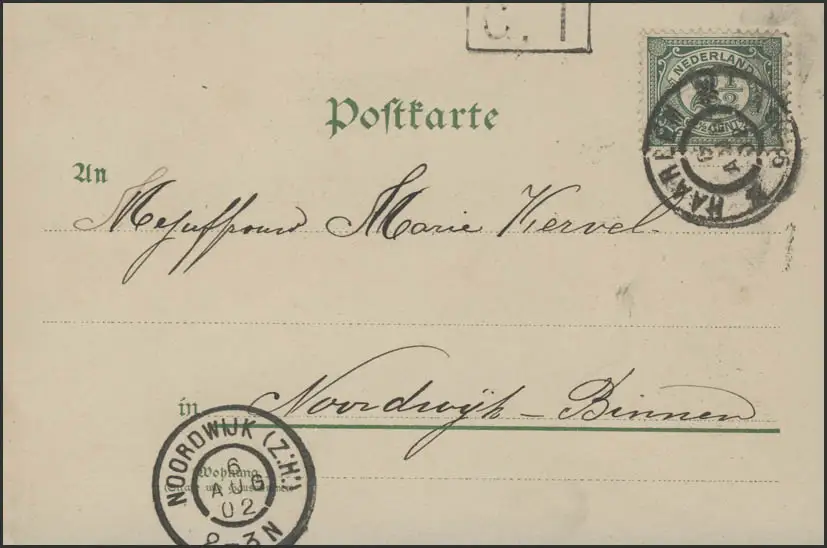 C. I
NEDERLAND
2½
HAARLEM
Postkarte
An
Mejuffrouw Marie Kervel.
in Noordwijk - Binnen
NOORDWIJK (Z.H.)
6
AUG
02
2-3N
Wohnung